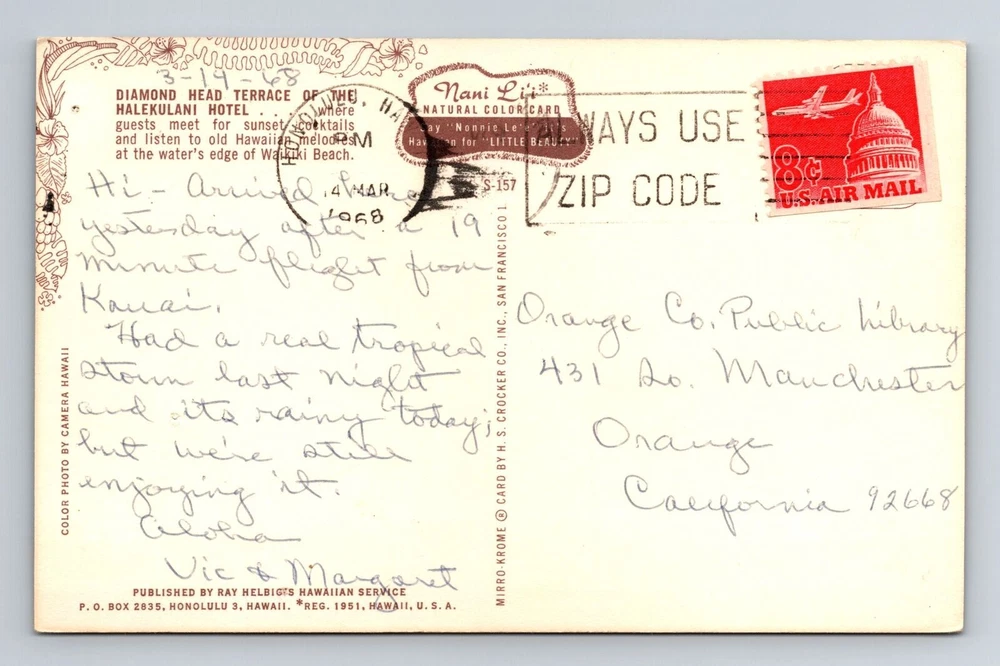 3-14-68
DIAMOND HEAD TERRACE OF THE
HALEKULANI HOTEL . . . where
guests meet for sunset cocktails
and listen to old Hawaiian melodies
at the water's edge of Waikiki Beach.
Nani Li'i*
NATURAL COLOR CARD
Say "Nonnie Le'e"
Hawaiian for "LITTLE BEAUTY"
S-157
HONOLULU, HA
PM
14 MAR
1968
ALWAYS USE
ZIP CODE
8¢
U.S. AIR MAIL
Hi - Arrived here
yesterday after a 19
minute flight from
Kauai.
Had a real tropical
storm last night
and its rainy today;
but we're still
enjoying it.
Aloha
Vic & Margaret
Orange Co. Public Library
431 So. Manchester
Orange
California 92668
COLOR PHOTO BY CAMERA HAWAII
MIRRO-KROME ® CARD BY H. S. CROCKER CO., INC., SAN FRANCISCO 1
PUBLISHED BY RAY HELBIG'S HAWAIIAN SERVICE
P. O. BOX 2835, HONOLULU 3, HAWAII. *REG. 1951, HAWAII, U. S. A.